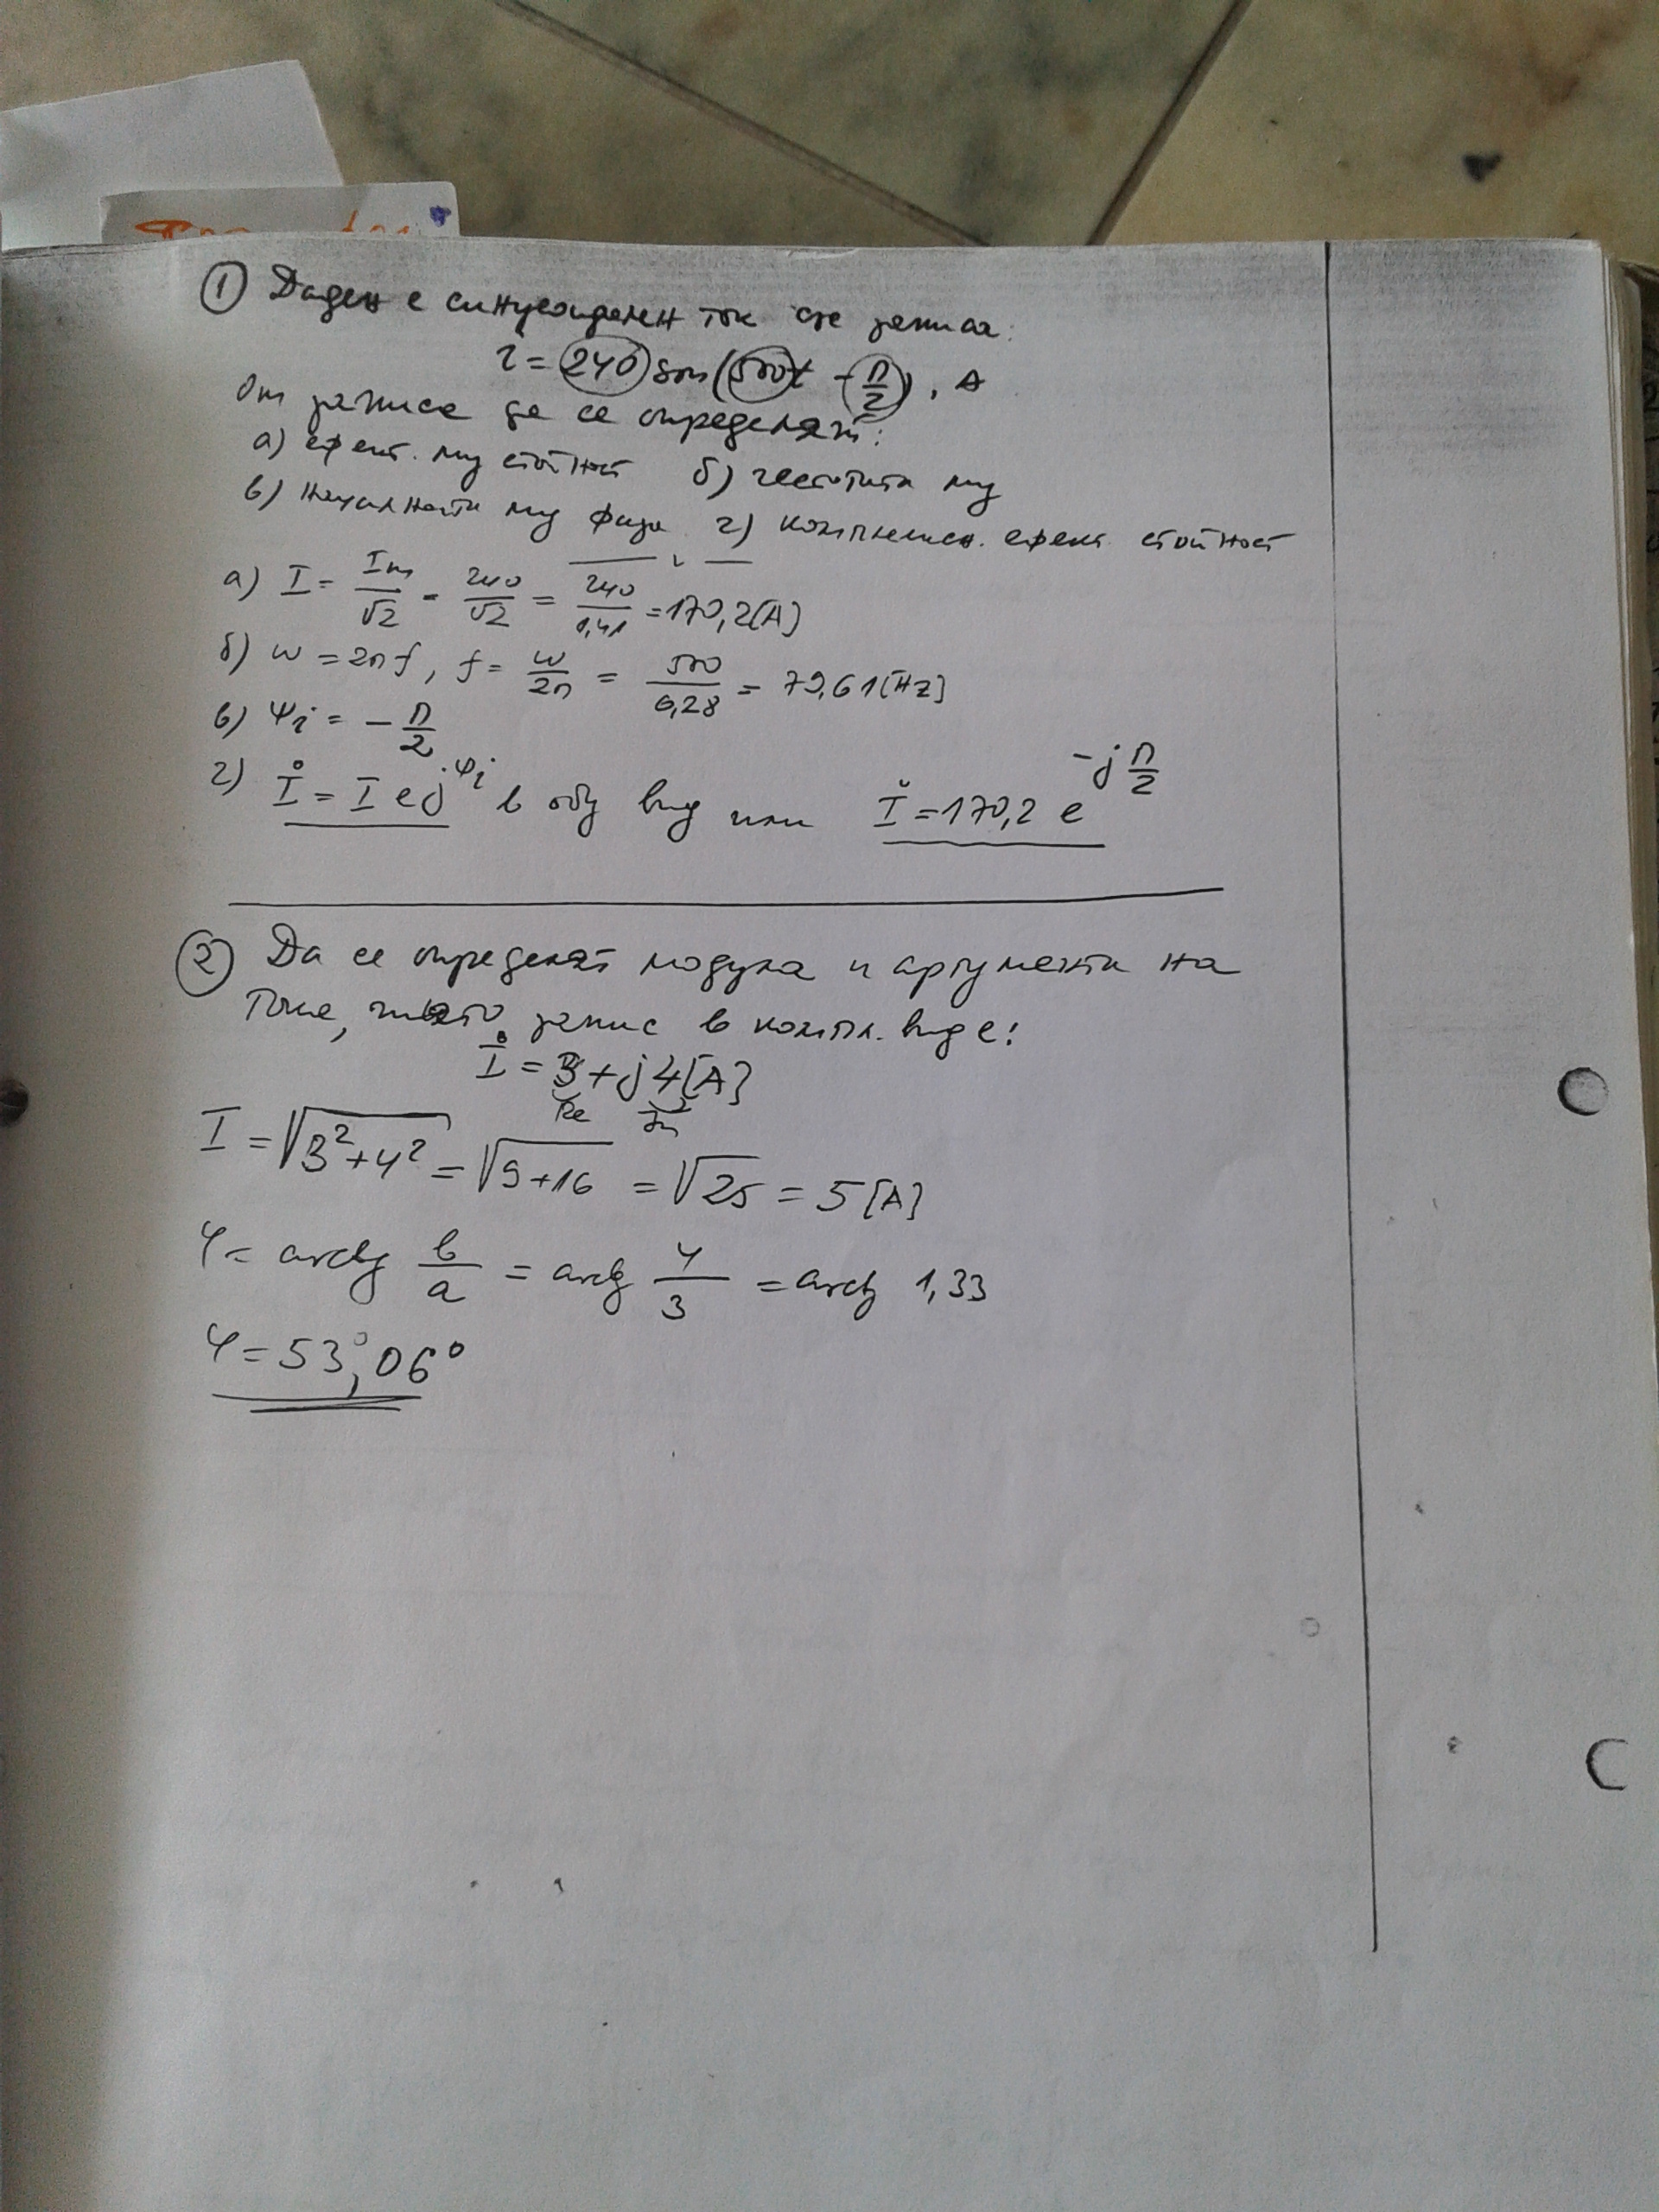 ① Даден е синусоидален ток със записа:
i = 240 sin(500t - π/2), A
От записа да се определят:
а) ефект. му стойност б) честотата му
в) началната му фаза г) комплексн. ефект. стойност
а) I = Im/√2 = 240/√2 = 240/1,41 = 170,2 [A]
б) ω = 2πf, f = ω/2π = 500/6,28 = 79,61 [Hz]
в) Ψi = - π/2
г) İ = I e^jΨi в общ вид или İ = 170,2 e^-jπ/2
② Да се определят модула и аргумента на
тока, чийто запис в компл. вид е:
İ = 3 + j4 [A]
Re Jm
I = √3² + 4² = √9 + 16 = √25 = 5 [A]
φ = arctg b/a = arctg 4/3 = arctg 1,33
φ = 53°,06°